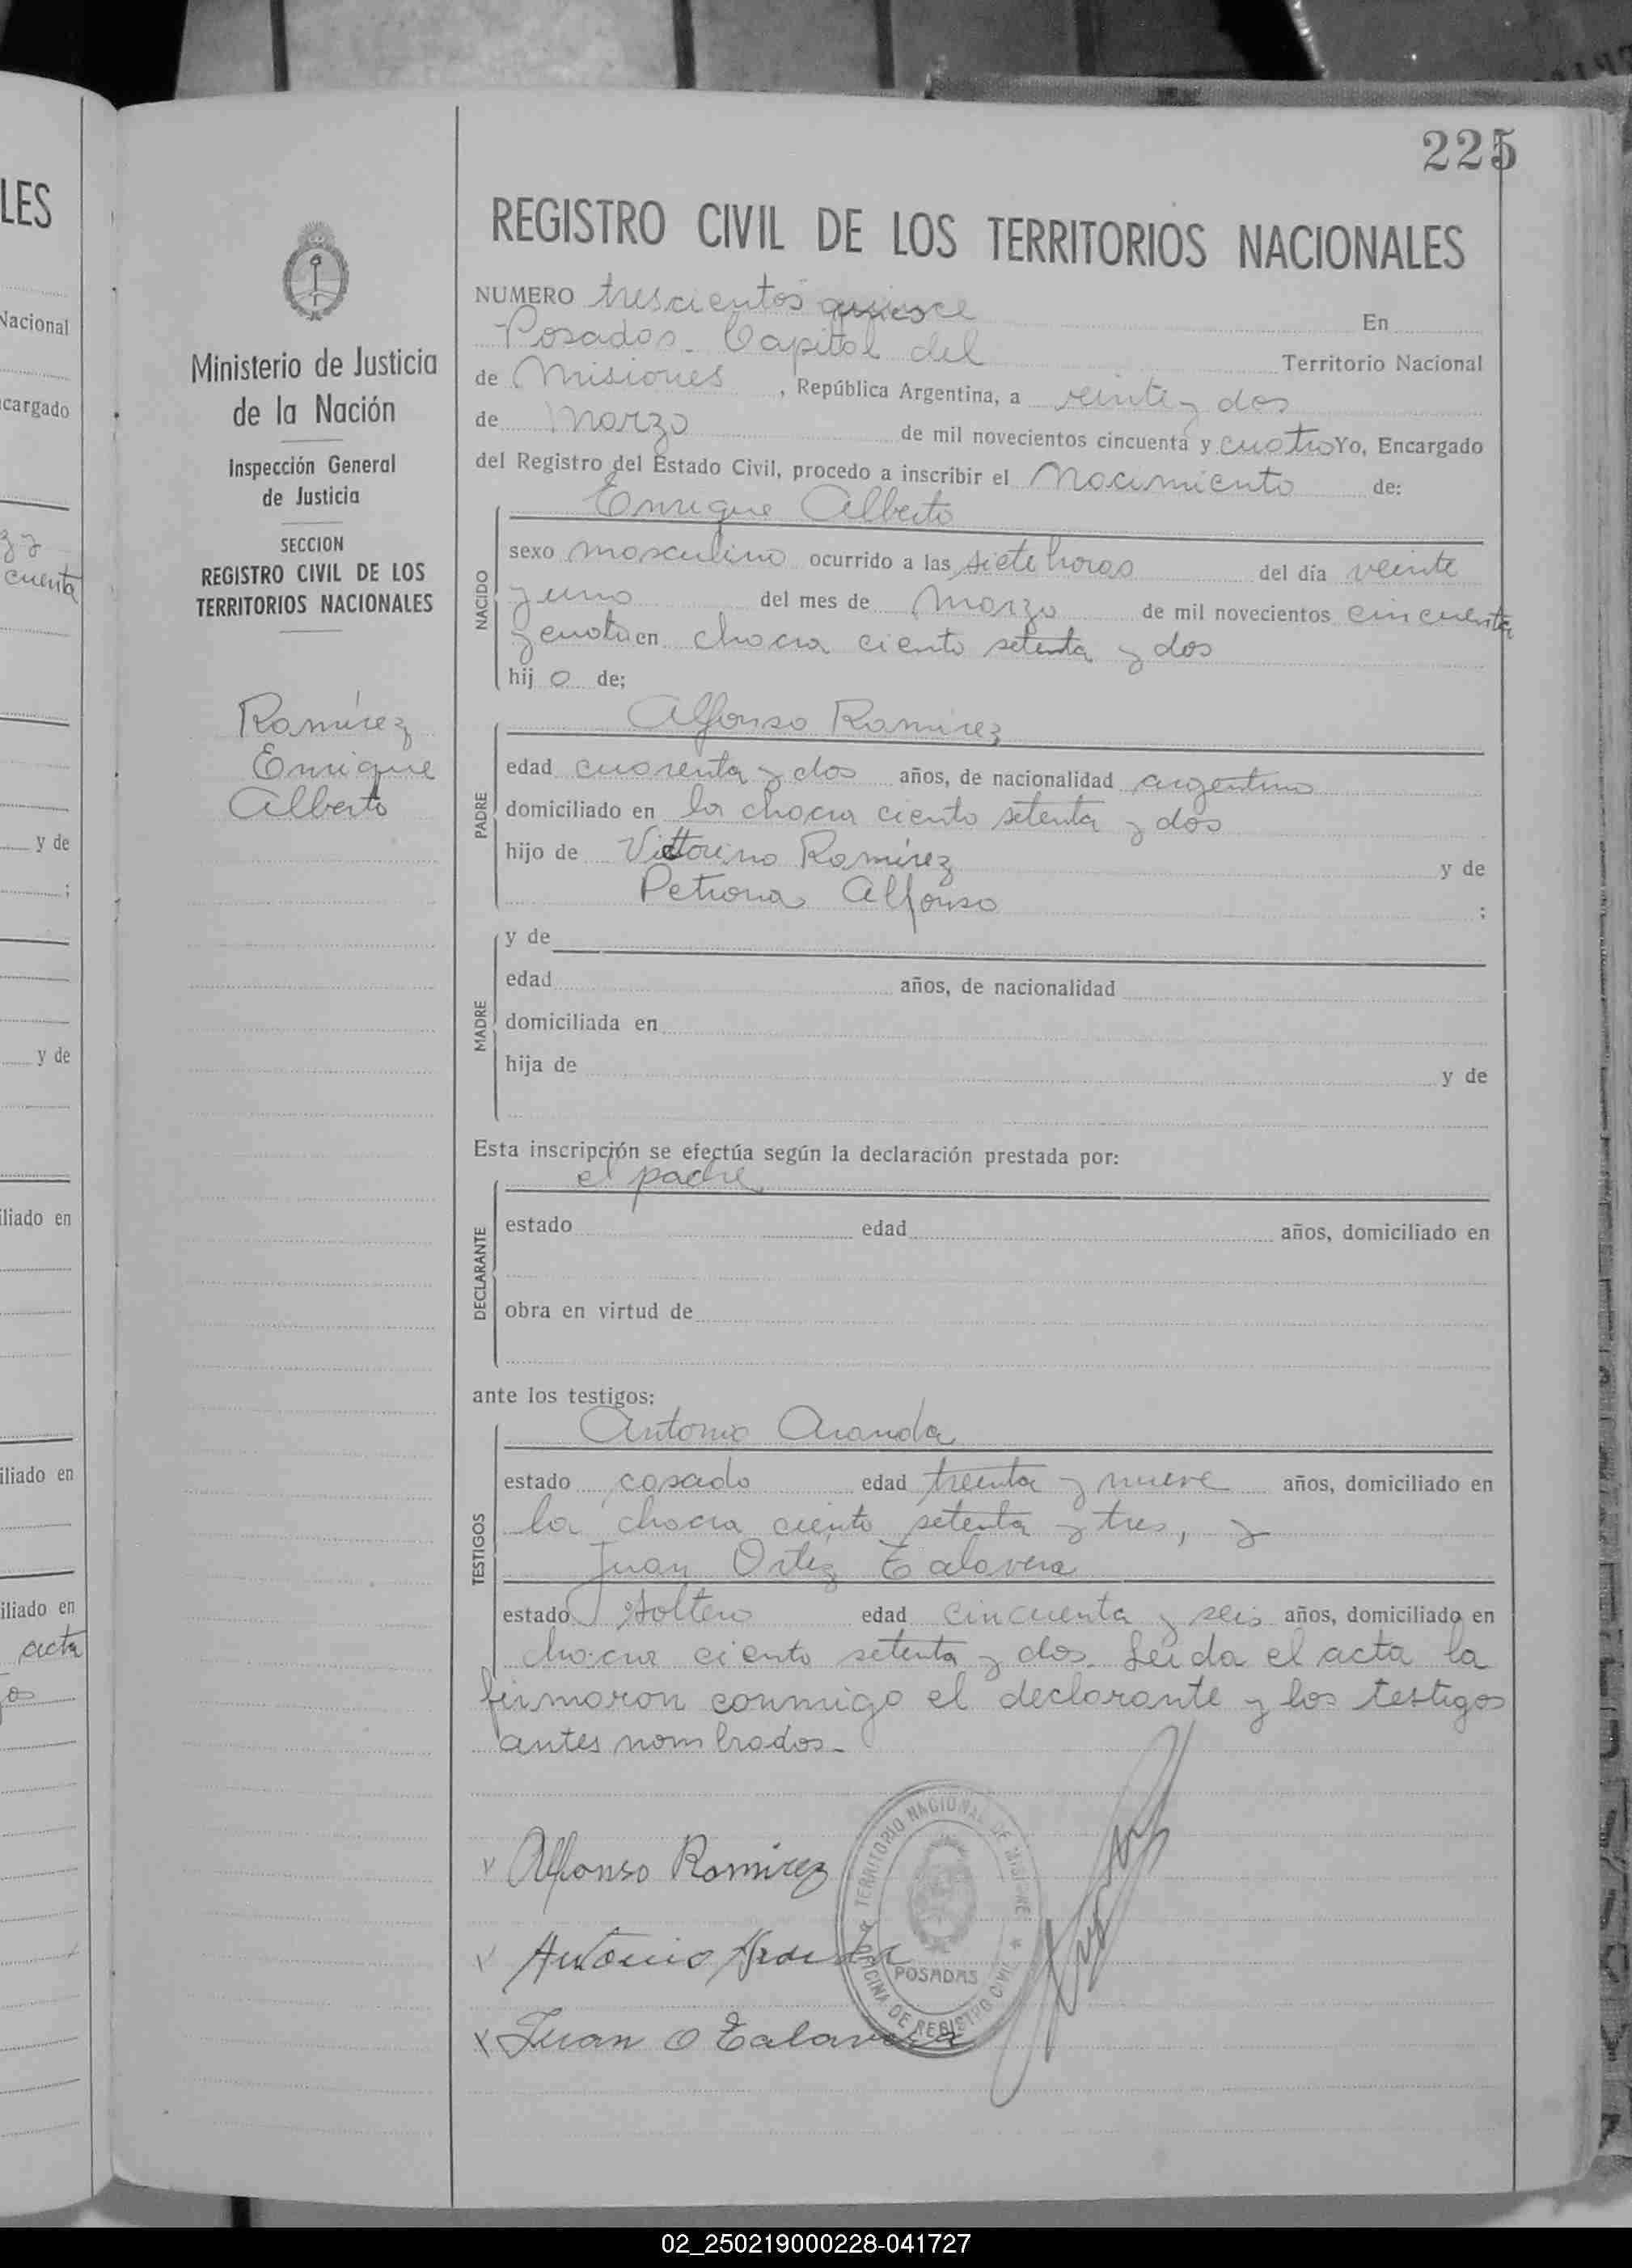 LES
Nacional
cargado
cuenta
y de
;
y de
iliado en
iliado en
iliado en
acta
225
Ministerio de Justicia
de la Nación
Inspección General
de Justicia
SECCION
REGISTRO CIVIL DE LOS
TERRITORIOS NACIONALES
Ramírez
Enrique
Alberto
REGISTRO CIVIL DE LOS TERRITORIOS NACIONALES
NUMERO trescientos quince En
Posadas. Capital del Territorio Nacional
de Misiones, República Argentina, a veinte y dos
de Marzo de mil novecientos cincuenta y cuatro Yo, Encargado
del Registro del Estado Civil, procedo a inscribir el Nacimiento de:
Enrique Alberto
NACIDO
sexo masculino ocurrido a las siete horas del día veinte
y uno del mes de Marzo de mil novecientos cincuenta
y cuatro en chacra ciento setenta y dos
hijo de;
Alfonso Ramírez
PADRE
edad cuarenta y dos años, de nacionalidad argentino
domiciliado en la chacra ciento setenta y dos
hijo de Victorino Ramírez y de
Petrona Alfonso ;
MADRE
y de
edad años, de nacionalidad
domiciliada en
hija de y de
Esta inscripción se efectúa según la declaración prestada por:
el padre
DECLARANTE
estado edad años, domiciliado en
obra en virtud de
ante los testigos:
Antonio Aranda
TESTIGOS
estado casado edad treinta y nueve años, domiciliado en
la chacra ciento setenta y tres, y
Juan Ortiz Talavera
estado soltero edad cincuenta y seis años, domiciliado en
chacra ciento setenta y dos. Leida el acta la
firmaron conmigo el declarante y los testigos
antes nombrados.-
Alfonso Ramirez
Antonio Aranda
Juan O Talavera
TERRITORIO NACIONAL DE MISIONES
OFICINA DE REGISTRO CIVIL
POSADAS
02_250219000228-041727